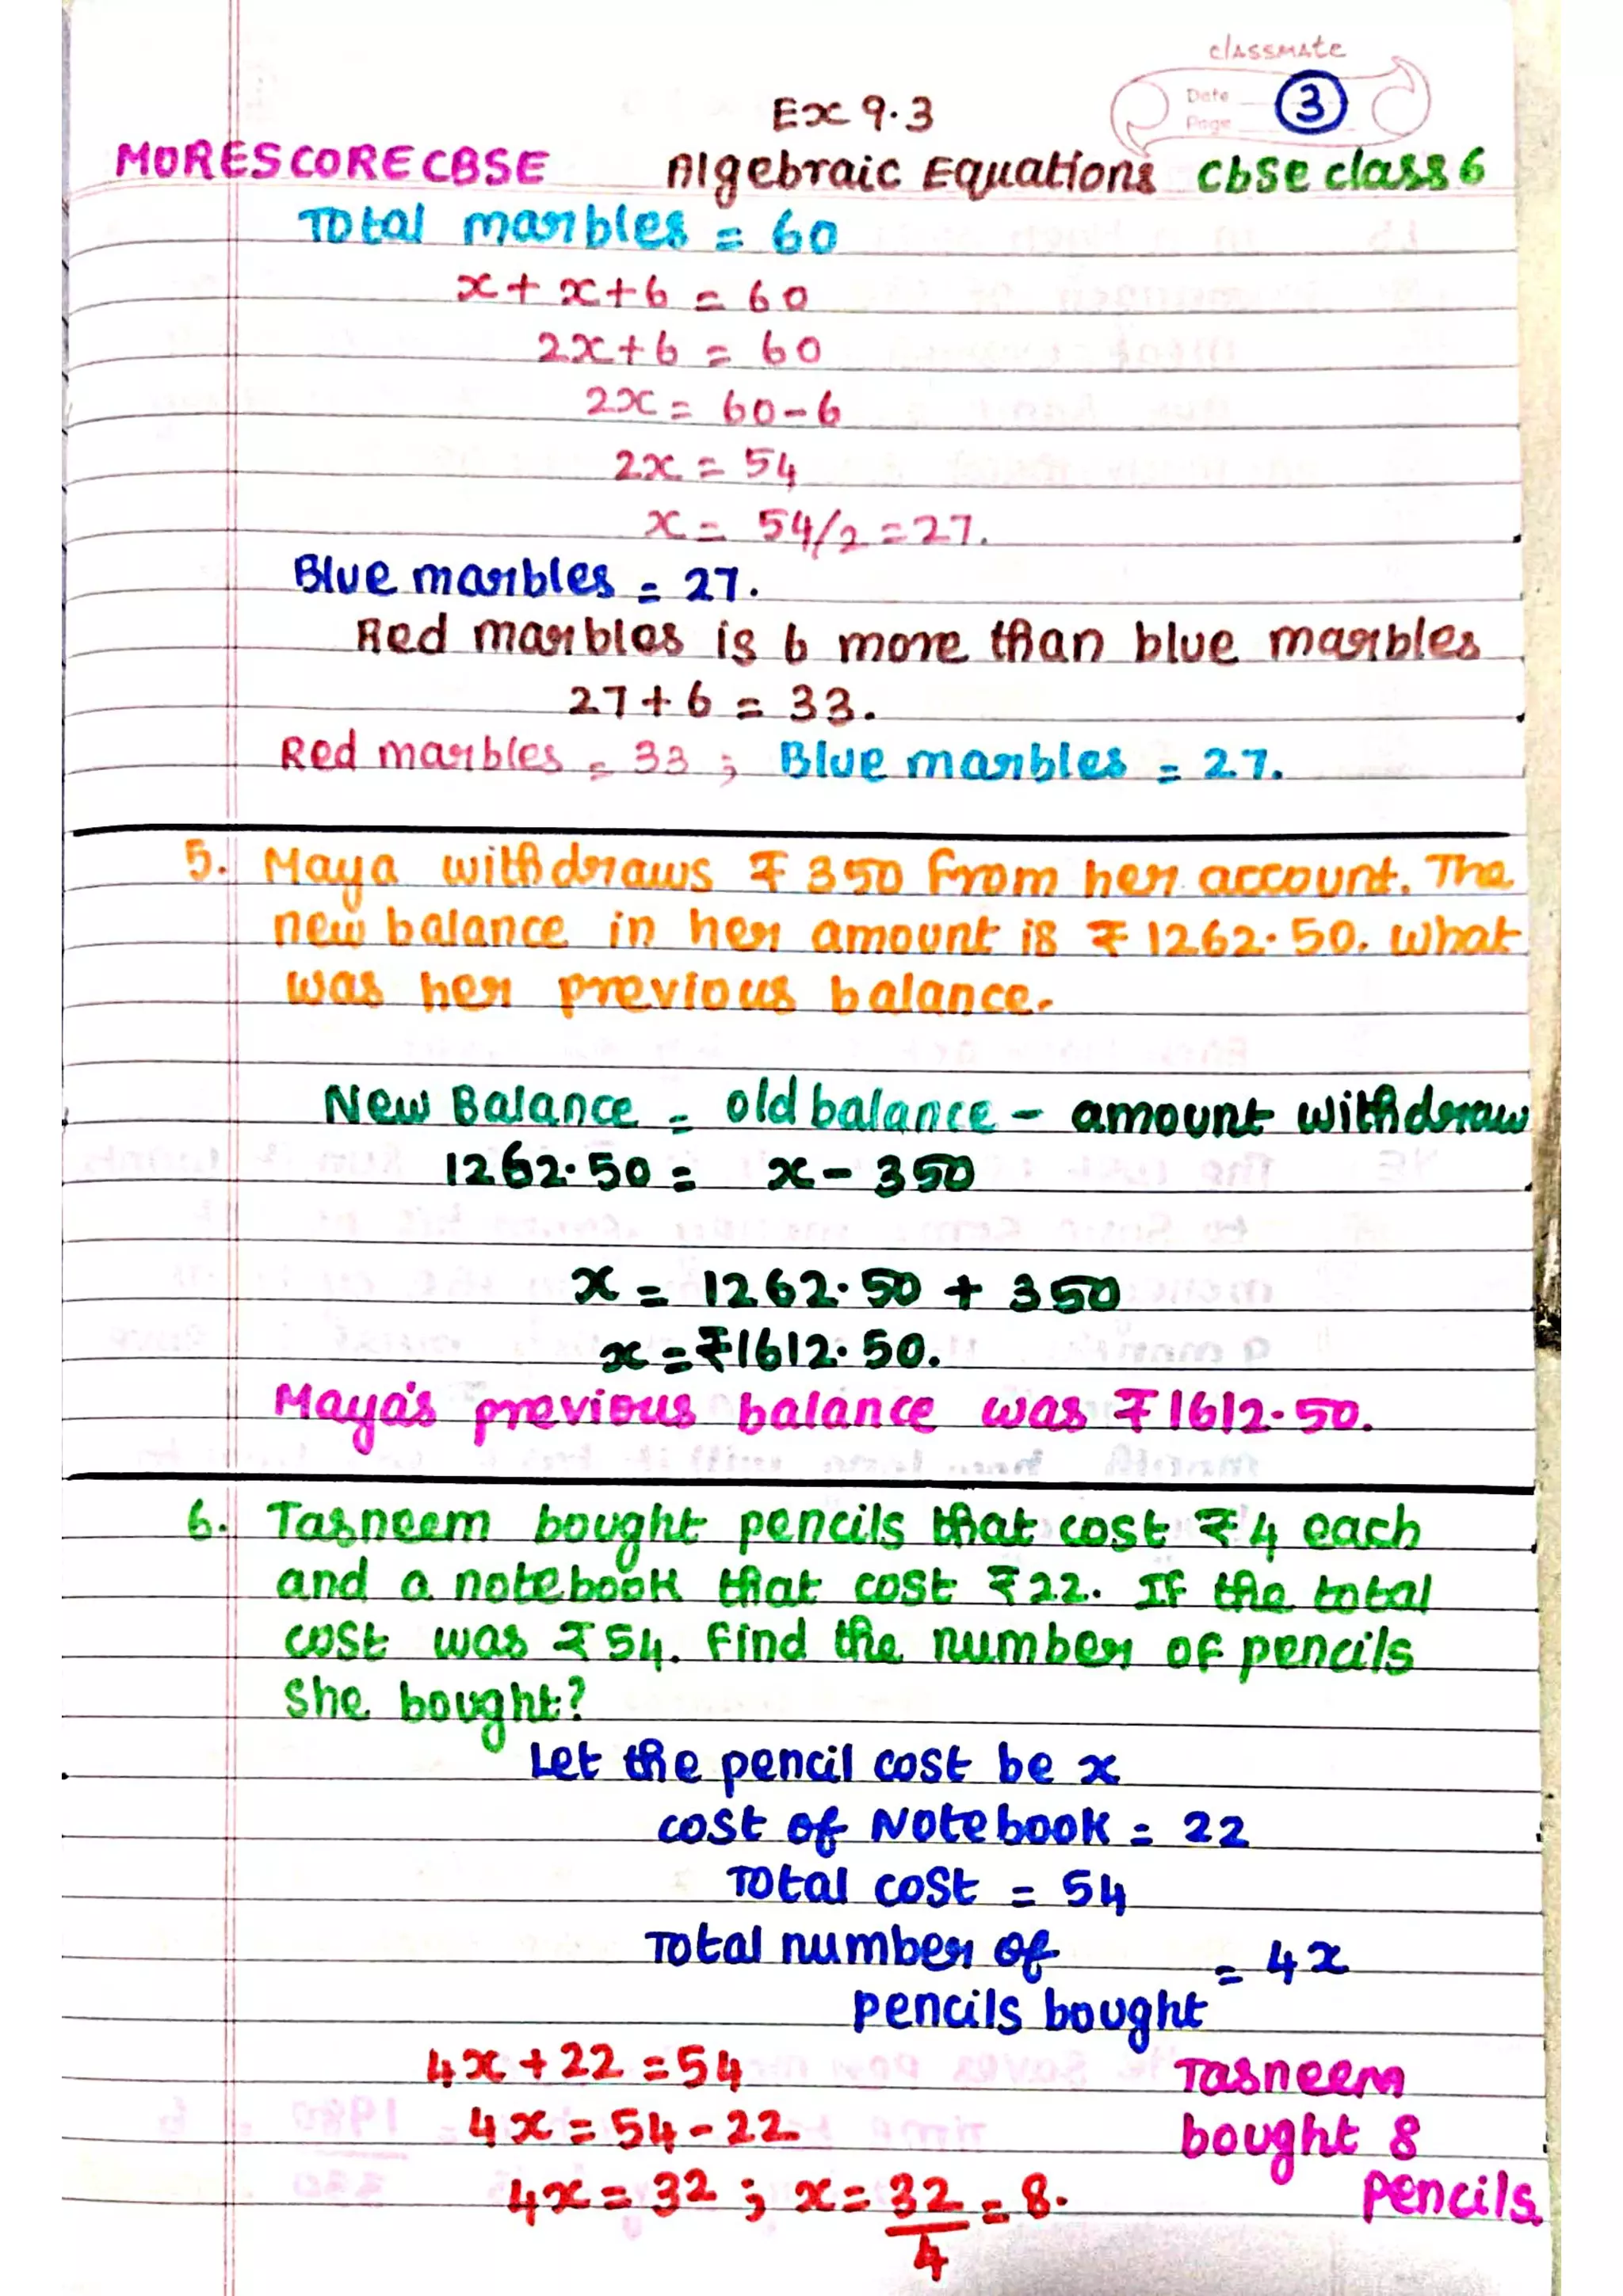 classmate
Date
Page
3
Ex 9.3
MORESCORECBSE Algebraic Equations CbSe class 6
Total marbles = 60
x + x + 6 = 60
2x + 6 = 60
2x = 60 - 6
2x = 54
x = 54/2 = 27.
Blue marbles = 27.
Red marbles is 6 more than blue marbles
27 + 6 = 33.
Red marbles = 33 ; Blue marbles = 27.
5. Maya withdraws ₹ 350 from her account. The
new balance in her amount is ₹ 1262.50. What
was her previous balance.
New Balance = old balance - amount withdraw
1262.50 = x - 350
x = 1262.50 + 350
x = ₹1612.50.
Maya's previous balance was ₹1612.50.
6. Tasneem bought pencils that cost ₹4 each
and a notebook that cost ₹22. If the total
cost was ₹54. Find the number of pencils
she bought?
Let the pencil cost be x
cost of Notebook = 22
Total cost = 54
Total number of
pencils bought = 4x
4x + 22 = 54
4x = 54 - 22
4x = 32 ; x = 32/4 = 8.
Tasneem
bought 8
pencils.